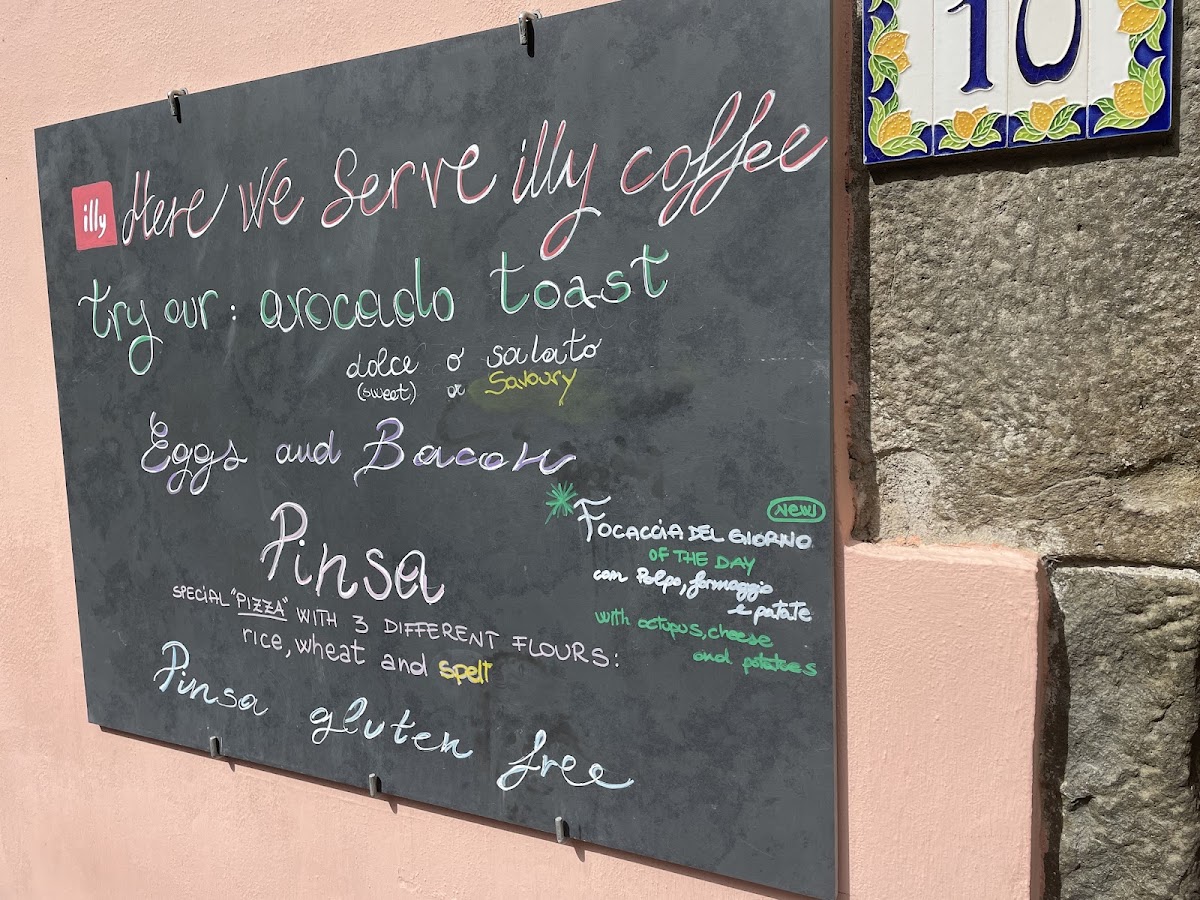 10
illy Here We Serve illy coffee
try our: avocado toast
dolce o salato
(sweet) or Savoury
Eggs and Bacon
Pinsa
SPECIAL "PIZZA" WITH 3 DIFFERENT FLOURS:
rice, wheat and spelt
Pinsa gluten free
NEW!
FOCACCIA DEL GIORNO
OF THE DAY
con Polpo, formaggio
e patate
with octupus, cheese
and potatoes